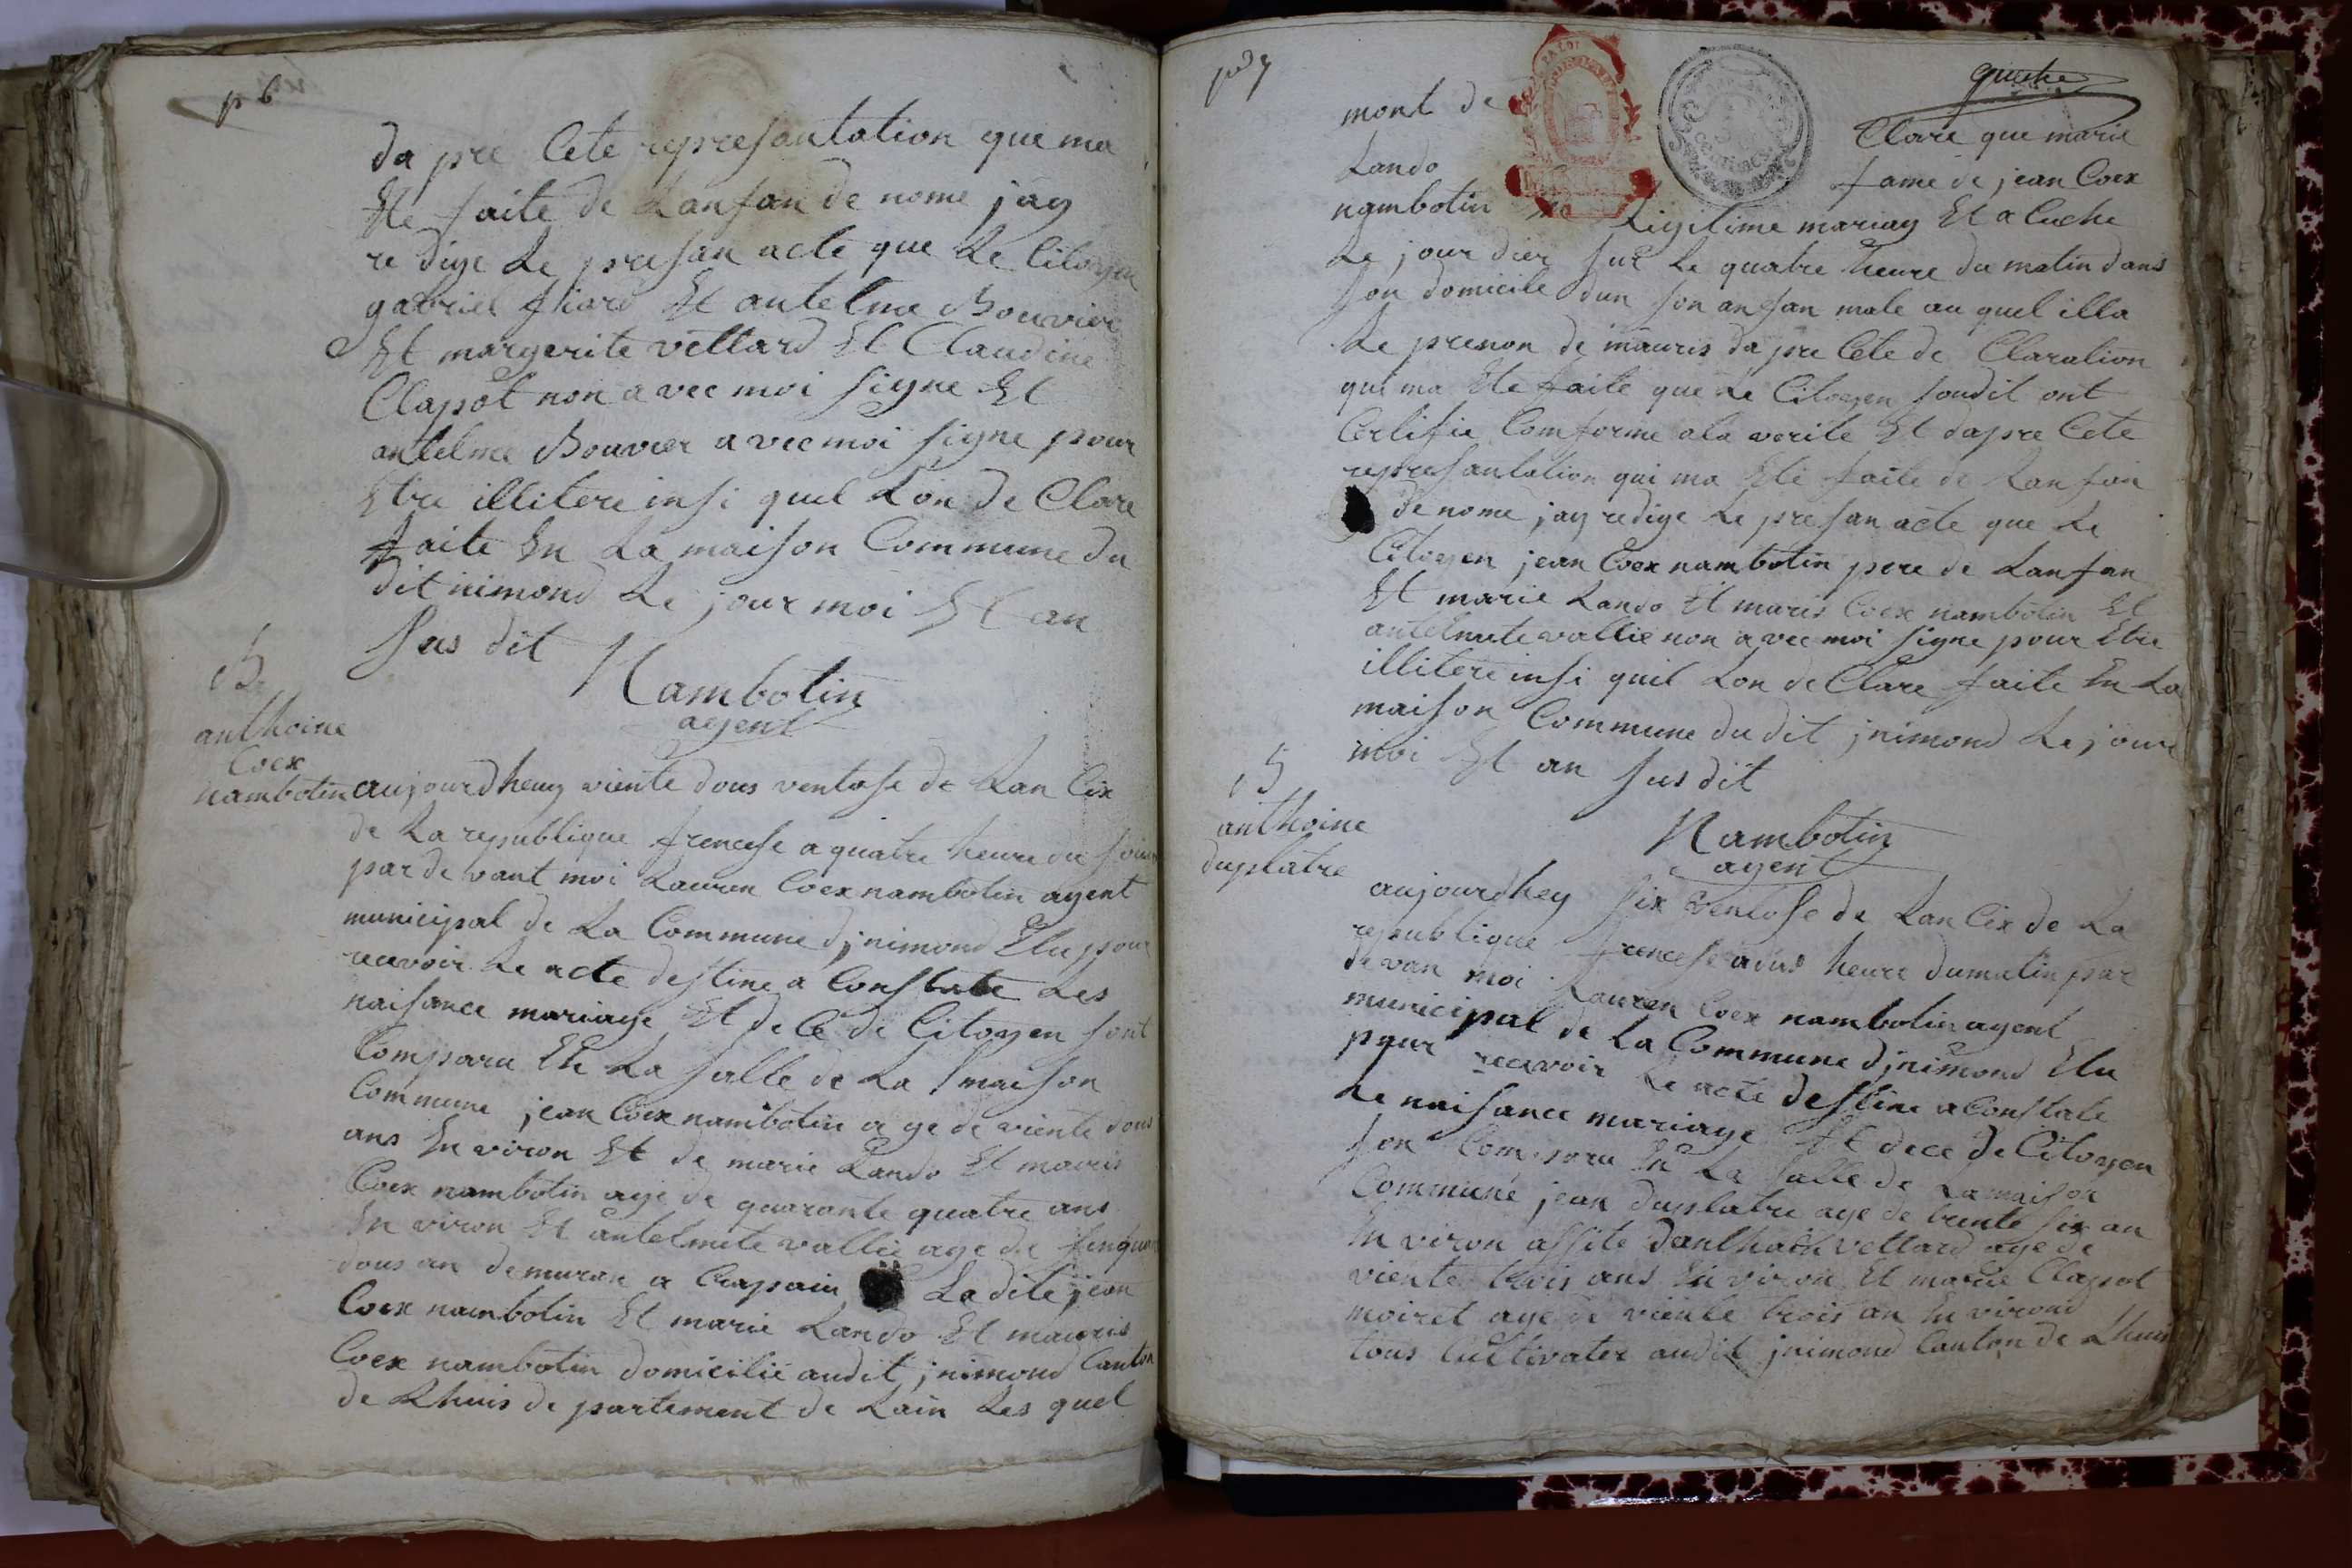 p 6
da pre Cete represantation que ma
Ete faite de Lanfan de nome jay
redige Le presan acte que Le Citoyen
gabriel fiard Et antelme Bouvier
Et margerite vettard Et Claudine
Clapot non avec moi signe Et
antelme Bouvier avec moi signe pour
Etre illitere insi quel Lon de Clare
faite En La maison Commune du
dit inimond Le jour moi Et an
sus dit
Nambotin
agent
anthoine
Coex
nambotin
aujourdheuy viente dous ventose de Lan Cix
de La republique francese a quatre heure du soir
par de vant moi Lauren Coex nambotin agent
municipal de La Commune djnimond Elu pour
recevoir Le acte destine a Constate Les
naisance mariage Et de Ce de Citoyen sont
Comparu En La salle de La maison
Commune jean Coex nambotin a ge de viente dous
ans En viron Et de marie Lando Et mauris
Coex nambotin age de quarante quatre ans
En viron Et antelmete vallie age de sinquan
dous an demuran a Crapain La dite jean
Coex nambotin Et marie Lando Et mauris
Coex nambotin domicilié audit jnimond Canton
de Lhuis de partement de Lain Les quel
p 7
mont de Clare que marie
Lando fame de jean Coex
nambotin Ligitime mariag Et a Cuche
Le jour dier sur Le quatre heure du matin dans
son domicile dun son anfan male au quel illa
Le prenon de mauris da pre Cete de Claration
qui ma Ete faite que Le Citoyen soudit ont
Certifie Comforme ala verite Et dapre Cete
represantation qui ma Ete faite de Lanfan
de nome jay redige Le presan acte que Le
Citoyen jean Coex nambotin pere de Lanfan
Et marie Lando Et mauris Coex nambotin Et
antelmete vallie non avec moi signe pour Etre
illitere insi quil Lon de Clare faite En La
maison Commune du dit jnimond Le jour
moi Et an sus dit
Nambotin
agent
anthoine
duplatre
aujourdhey six ventose de Lan Cix de La
republique francese a dous heure du matin par
de van moi Lauren Coex nambotin agent
municipal de La Commune djnimond Elu
pour recevoir Le acte destine a Constate
Le naisance mariage Et dece de Citoyen
son Comparu En La salle de La maison
Commune jean duplatre age de trente six an
En viron assite danthoine vettard age de
viente trois ans En viron Et marie Clapot
moiret age de viente trois an En virond
tous Cultivater audit jnimond Canton de Lhuis